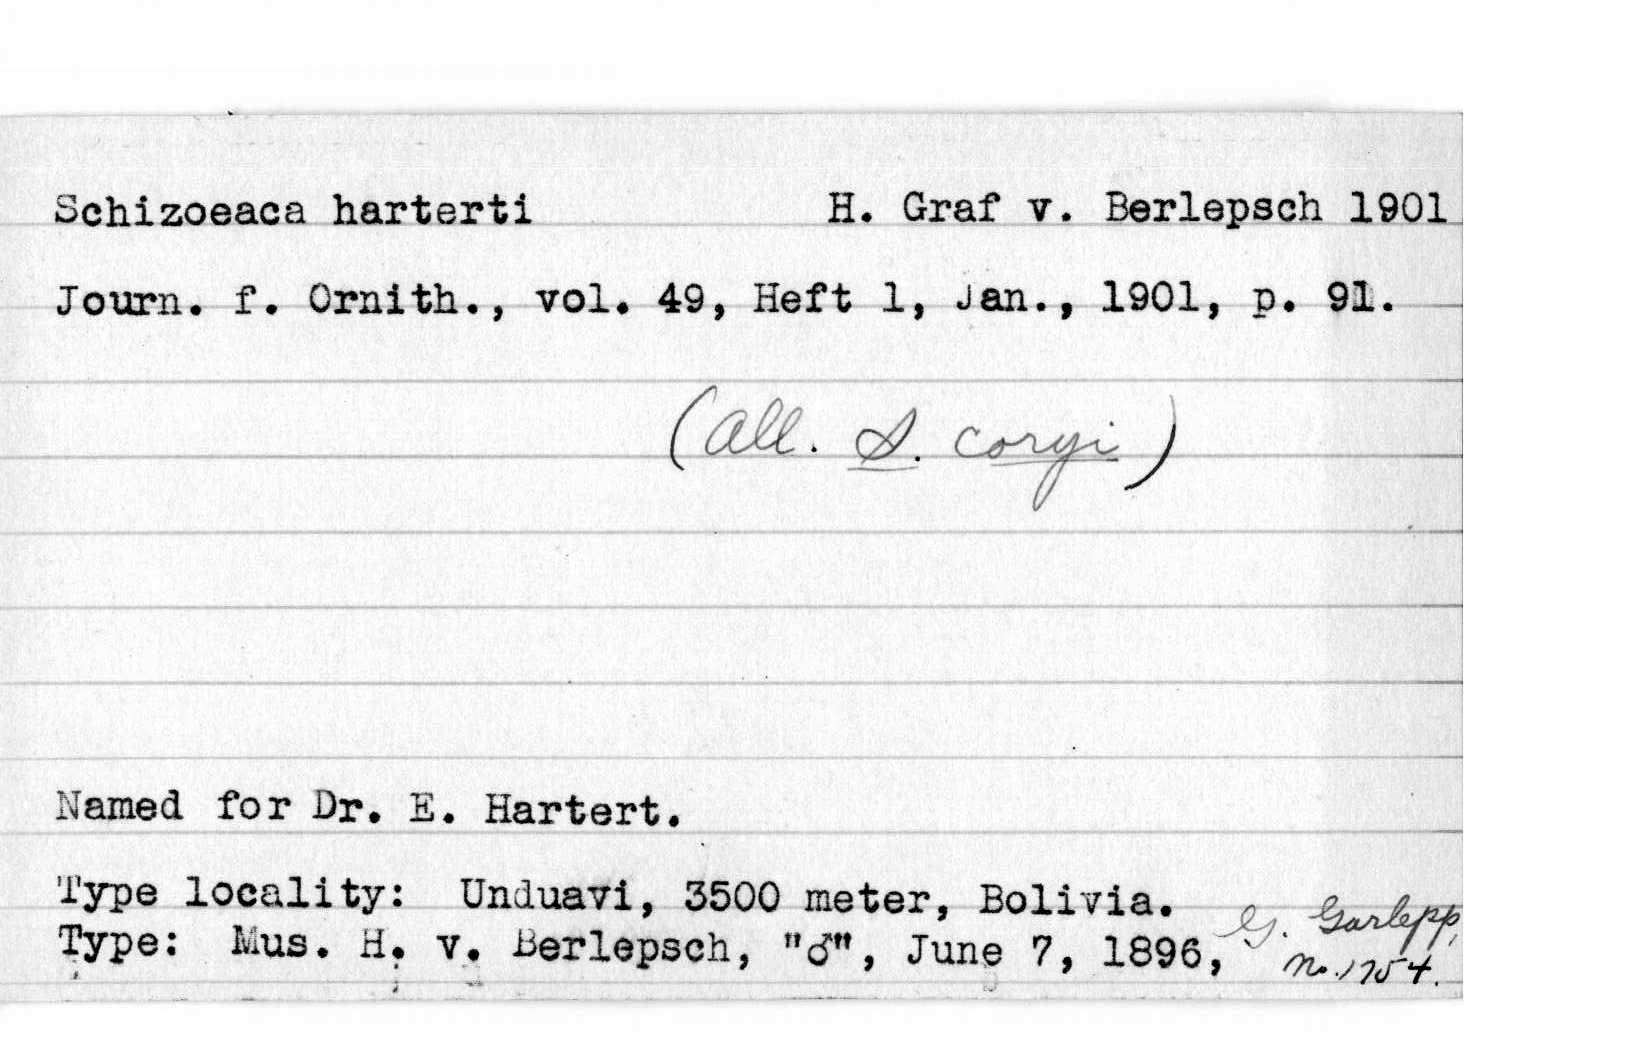 Schizoeaca harterti H. Graf v. Berlepsch 1901
Journ. f. Ornith., vol. 49, Heft 1, Jan., 1901, p. 91.
(all. S. coryi)
Named for Dr. E. Hartert.
Type locality: Unduavi, 3500 meter, Bolivia.
Type: Mus. H. v. Berlepsch, "♂", June 7, 1896, G. Garlepp,
No. 1754.